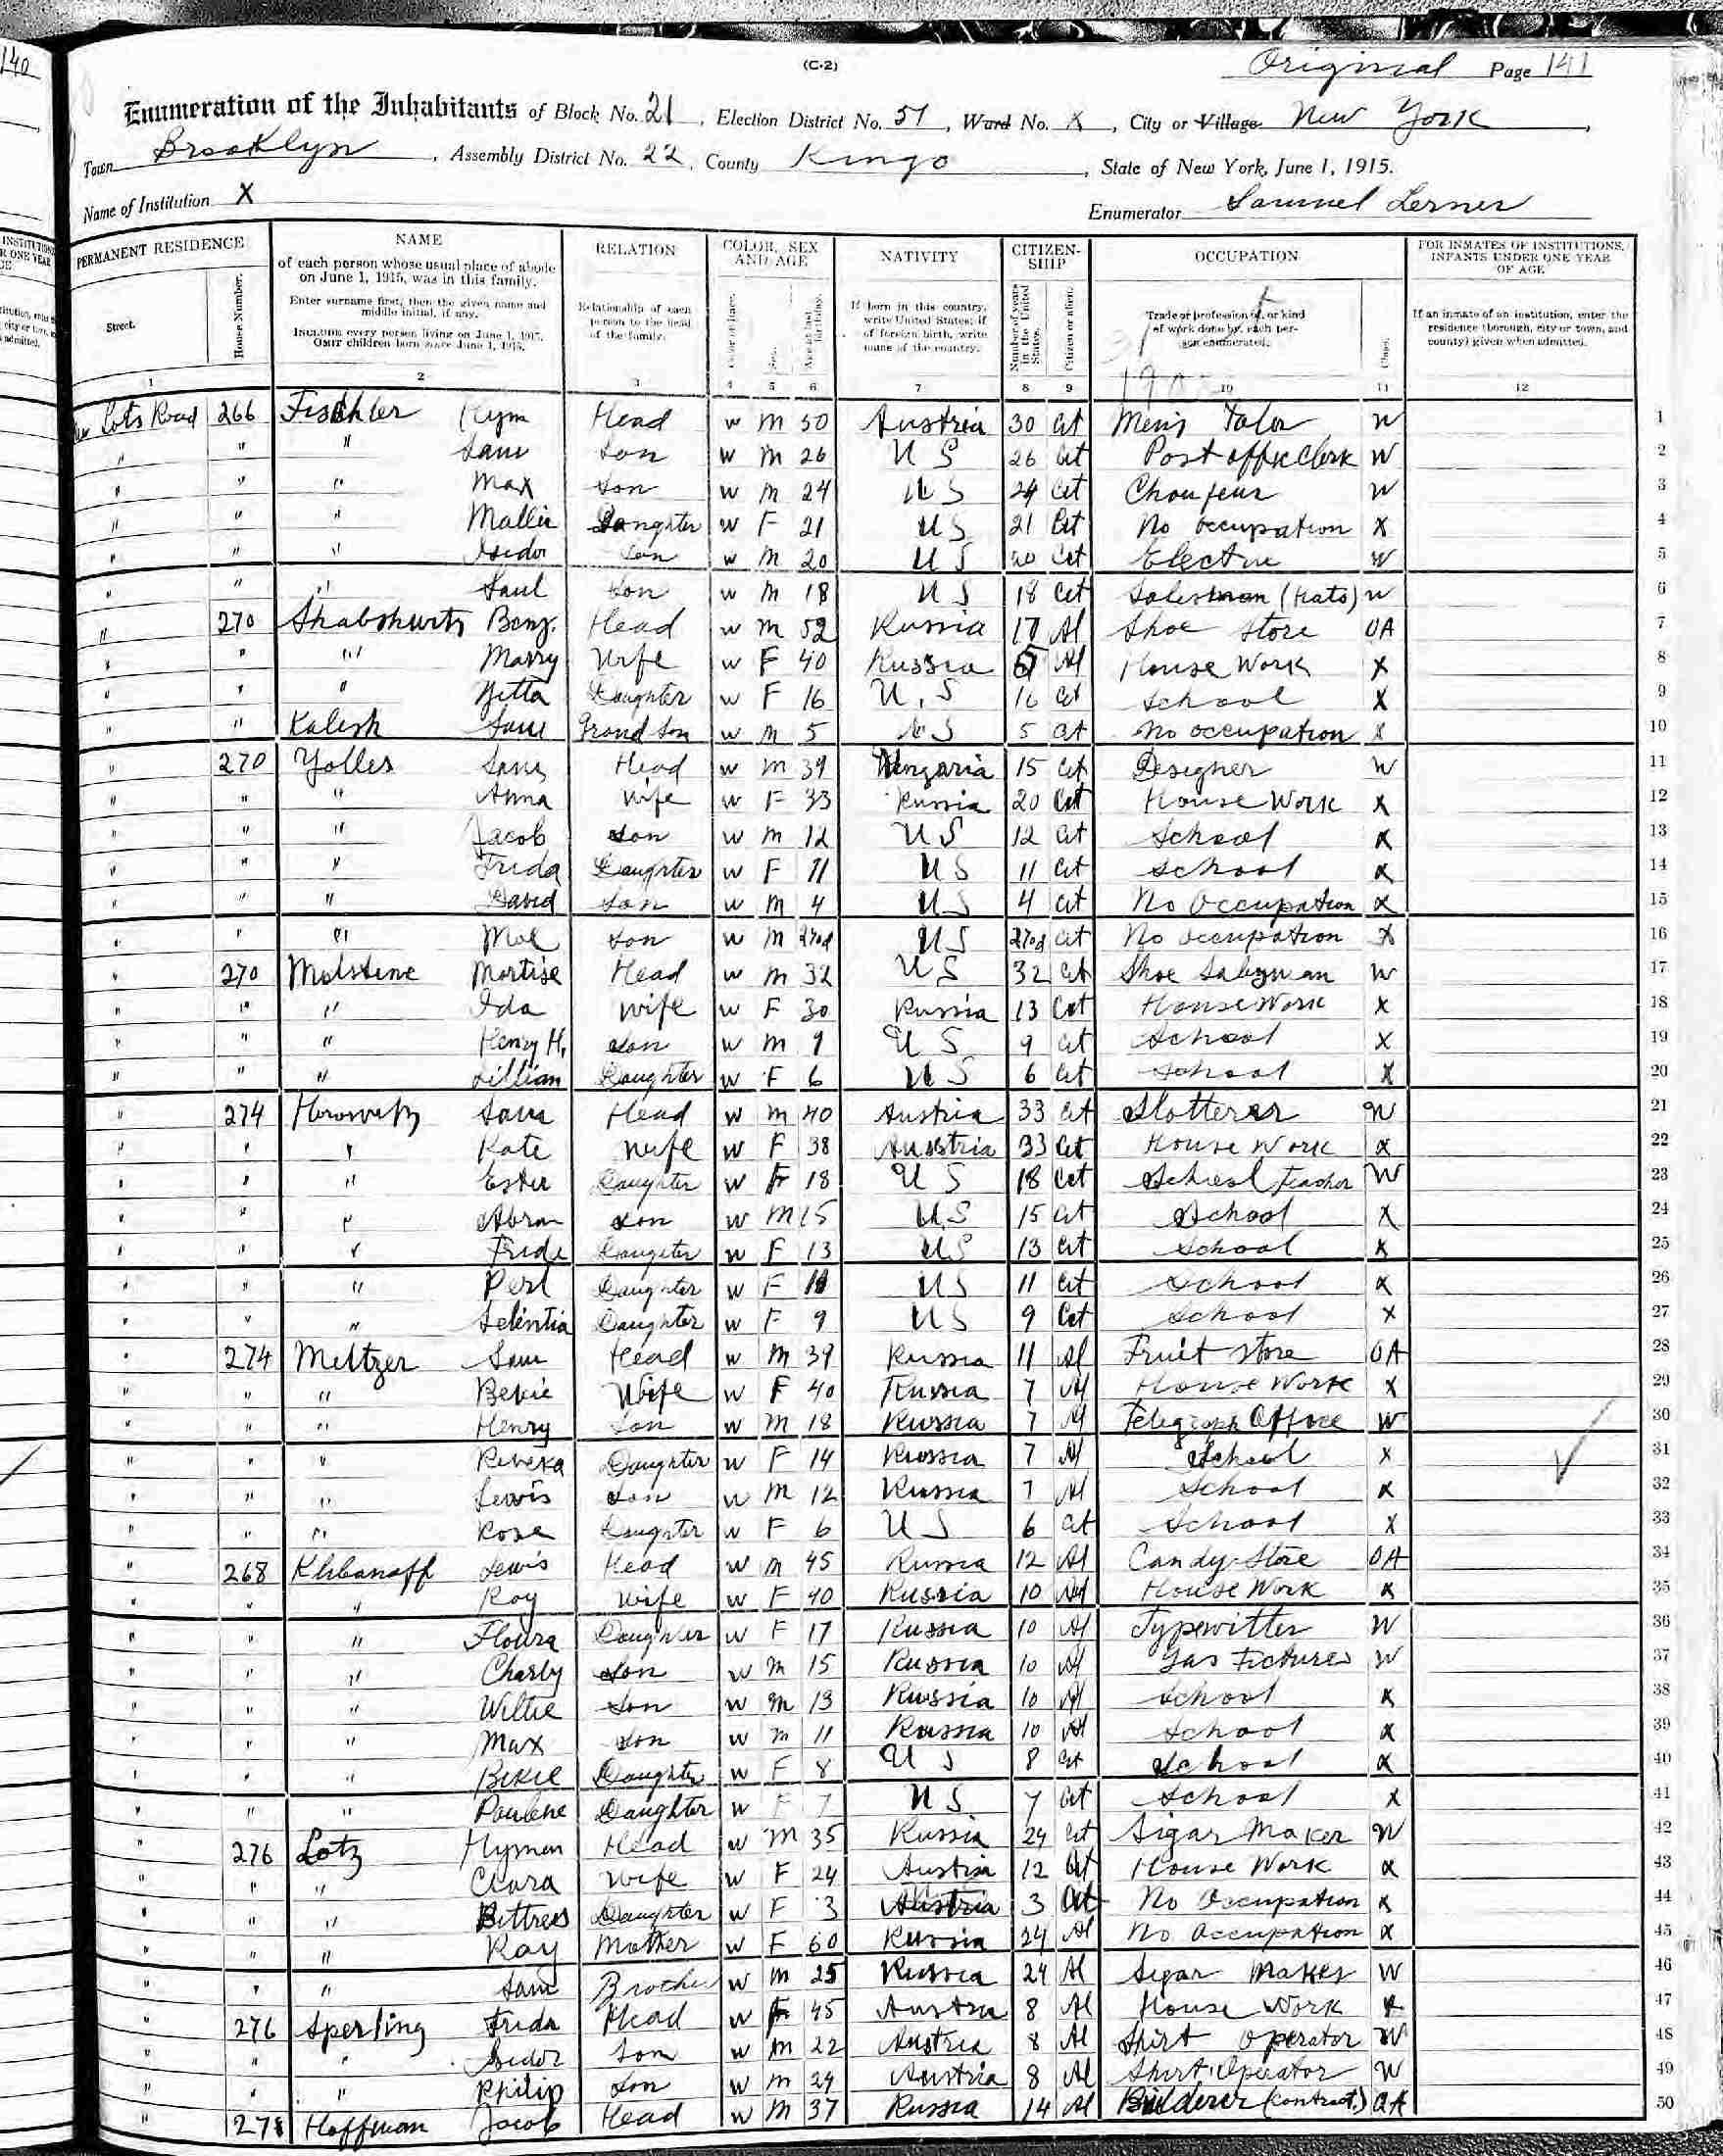 140
(C-2)
Original Page 141
Enumeration of the Inhabitants of Block No. 21, Election District No. 51, Ward No. X, City or Village New York,
Town Brooklyn, Assembly District No. 22, County Kings, State of New York, June 1, 1915.
Name of Institution X Enumerator Samuel Lerner
PERMANENT RESIDENCE NAME RELATION COLOR, SEX AND AGE NATIVITY CITIZENSHIP OCCUPATION FOR INMATES OF INSTITUTIONS, INFANTS UNDER ONE YEAR OF AGE
Street. House Number. of each person whose usual place of abode on June 1, 1915, was in this family. Enter surname first, then the given name and middle initial, if any. INCLUDE every person living on June 1, 1915. OMIT children born since June 1, 1915. Relationship of each person to the head of the family. Color or race. Sex. Age at last birthday. If born in this country, write United States; if of foreign birth, write name of the country. Number of years in the United States. Citizen or alien. Trade or profession of, or kind of work done by, each person enumerated. Class. If an inmate of an institution, enter the residence (borough, city or town, and county) given when admitted.
1 2 3 4 5 6 7 8 9 10 11 12
Lots Road 266 Fischler Hym Head W M 50 Austria 30 Cit Men's Talor W 1
" " " Sam Son W M 26 U S 26 Cit Post offic Clerk W 2
" " " Max Son W M 24 U S 24 Cit Choufeur W 3
" " " Mallie Daughter W F 21 U S 21 Cit No occupation X 4
" " " Isidor Son W M 20 U S 20 Cit Electric W 5
" " " Saul Son W M 18 U S 18 Cit Salesman (Hats) W 6
" 270 Shabshurtz Benj. Head W M 52 Russia 17 Al Shoe Store OA 7
" " " Marry Wife W F 40 Russia Al House Work X 8
" " " Yetta Daughter W F 16 U.S 16 Cit School X 9
" " Kalish Sam Grand Son W M 5 U S 5 Cit No occupation X 10
" 270 Yolles Sam Head W M 39 Hungaria 15 Cit Designer W 11
" " " Anna Wife W F 33 Russia 20 Cit House Work X 12
" " " Jacob Son W M 12 U S 12 Cit School X 13
" " " Frida Daughter W F 11 U S 11 Cit School X 14
" " " David Son W M 4 U S 4 Cit No Occupation X 15
" " " Moe Son W M U S Cit No occupation X 16
" 270 Molstene Mortise Head W M 32 U S 32 Cit Shoe Salesman W 17
" " " Ida Wife W F 30 Russia 13 Cit House Work X 18
" " " Henry H. Son W M 9 U S 9 Cit School X 19
" " " Lillian Daughter W F 6 U S 6 Cit School X 20
" 274 Horowitz Sam Head W M 40 Austria 33 Cit Slotterer W 21
" " " Kate Wife W F 38 Austria 33 Cit House Work X 22
" " " Ester Daughter W F 18 U S 18 Cit School Teacher W 23
" " " Abram Son W M 15 U.S 15 Cit School X 24
" " " Fride Daugeter W F 13 U S 13 Cit School X 25
" " " Perl Daughter W F 11 U S 11 Cit School X 26
" " " Selentia Daughter W F 9 U S 9 Cit School X 27
" 274 Meltzer Sam Head W M 39 Russia 11 Al Fruit Store OA 28
" " " Bekie Wife W F 40 Russia 7 Al House Work X 29
" " " Henry Son W M 18 Russia 7 Al Telegraph Office W 30
" " " Rebeka Daughter W F 14 Russia 7 Al School X 31
" " " Lewis Son W M 12 Russia 7 Al School X 32
" " " Rose Daughter W F 6 U S 6 Cit School X 33
" 268 Khbanoff Lewis Head W M 45 Russia 12 Al Candy Store OA 34
" " " Ray Wife W F 40 Russia 10 Al House Work X 35
" " " Floura Daughter W F 17 Russia 10 Al Typewitter W 36
" " " Charly Son W M 15 Russia 10 Al Gas Fictures W 37
" " " Willie Son W M 13 Russia 10 Al School X 38
" " " Max Son W M 11 Russia 10 Al School X 39
" " " Bekie Daughter W F 8 U S 8 Cit School X 40
" " " Paulene Daughter W F 7 U S 7 Cit School X 41
" 276 Lotz Hyman Head W M 35 Russia 24 Cit Sigar Maker W 42
" " " Clara Wife W F 24 Austria 12 Cit House Work X 43
" " " Bettrees Daughter W F 3 Austria 3 Cit No Occupation X 44
" " " Ray Mother W F 60 Russia 24 Al No Occupation X 45
" " " Sam Brother W M 25 Russia 24 Al Sigar Maker W 46
" 276 Sperling Frida Head W F 45 Austria 8 Al House Work X 47
" " " Isidor Son W M 22 Austria 8 Al Shirt Operator W 48
" " " Philip Son W M 24 Austria 8 Al Shirt Operator W 49
" 278 Hoffman Jacob Head W M 37 Russia 14 Al Builderer (Contract.) OA 50